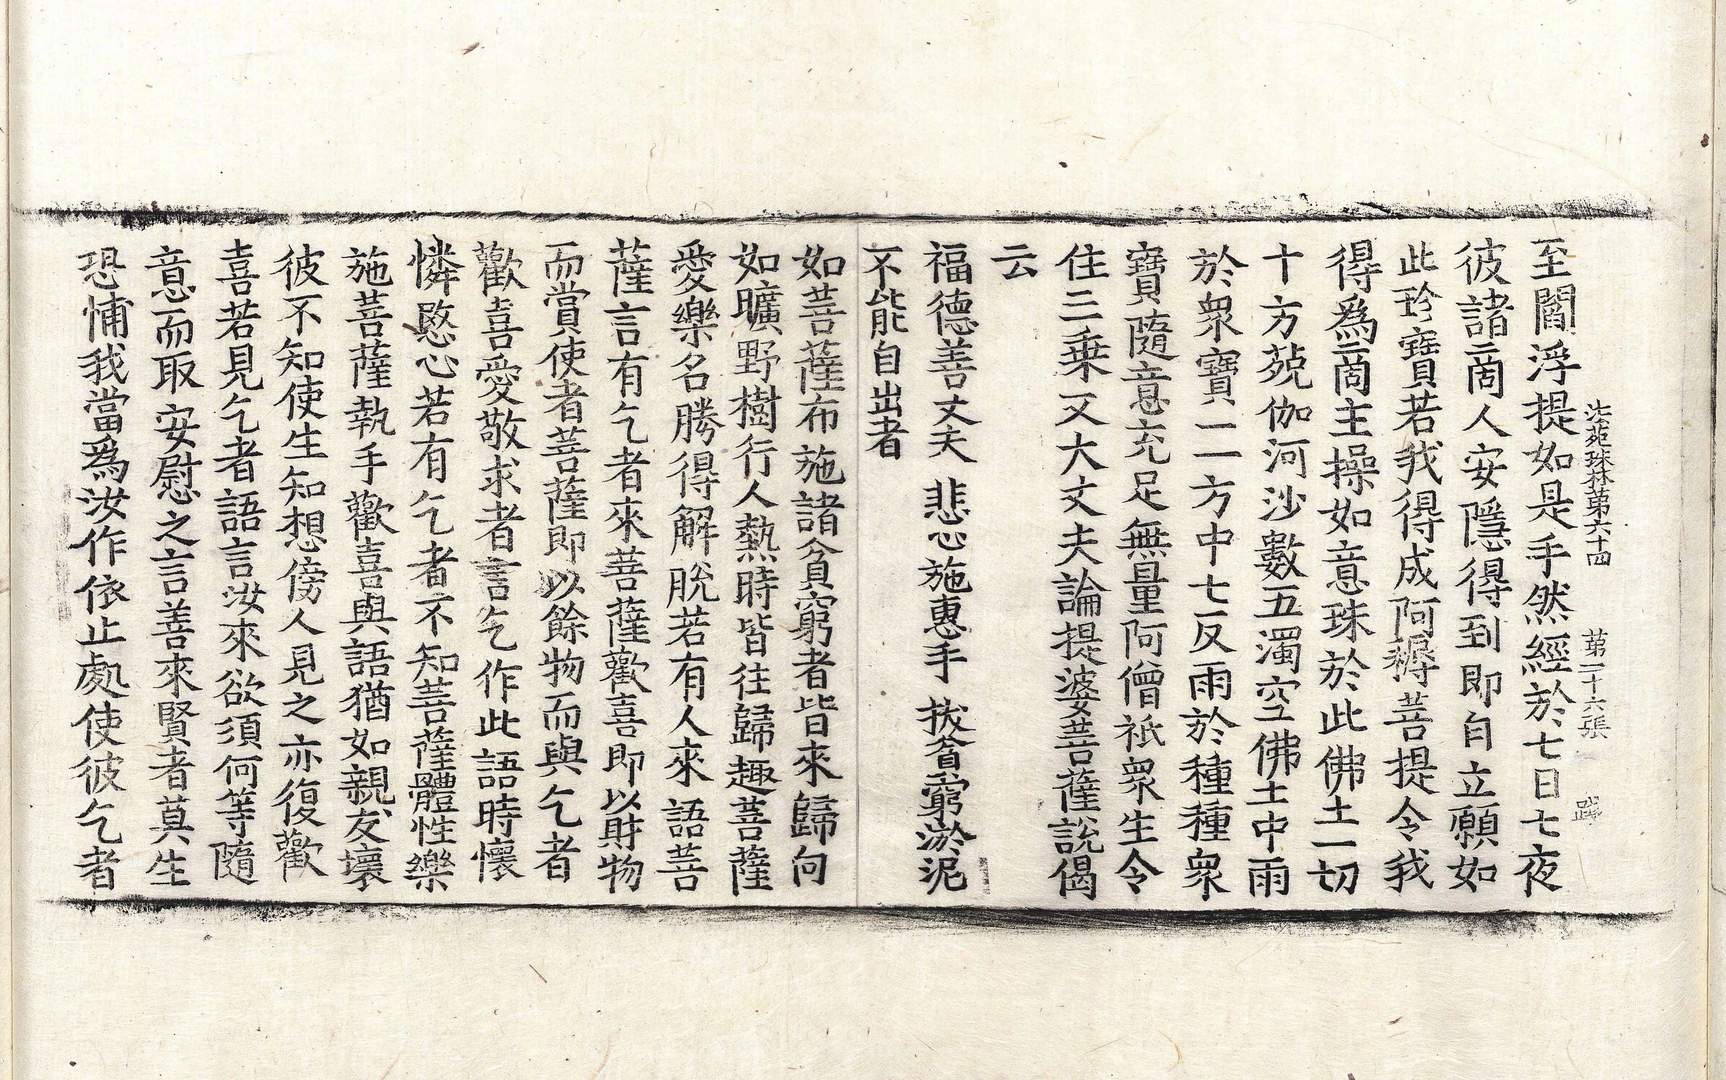 法苑珠林第六十四 第二十六張 跡
至閻浮提如是手然經於七日七夜
彼諸商人安隱得到即自立願如
此珍寶若我得成阿耨菩提令我
得爲商主操如意珠於此佛土一切
十方殑伽河沙數五濁空佛土中雨
於衆寶一一方中七反雨於種種衆
寶隨意充足無量阿僧祇衆生令
住三乗又大丈夫論提婆菩薩說偈
云
福德善丈夫 悲心施惠手 拔貧窮淤泥
不能自出者
如菩薩布施諸貧窮者皆來歸向
如曠野樹行人熱時皆往歸趣菩薩
愛樂名勝得解脫若有人來語菩
薩言有乞者來菩薩歡喜即以財物
而賞使者菩薩即以餘物而與乞者
歡喜愛敬求者言乞作此語時懷
憐愍心若有乞者不知菩薩體性樂
施菩薩執手歡喜與語猶如親友壞
彼不知使生知想傍人見之亦復歡
喜若見乞者語言汝來欲須何等隨
意而取安慰之言善來賢者莫生
恐怖我當爲汝作依止處使彼乞者